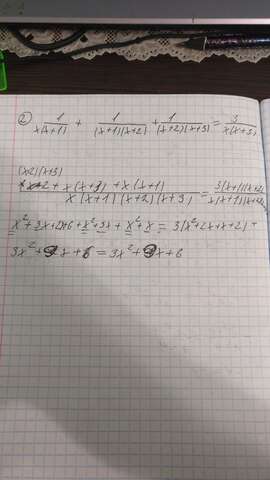 ② 1/x(x+1) + 1/(x+1)(x+2) + 1/(x+2)(x+3) = 3/x(x+3)
(x+2)(x+3)
+ x(x+3) + x(x+1) / x(x+1)(x+2)(x+3) = 3(x+1)(x+2) / x(x+1)(x+2)
x²+3x+2x+6+x²+3x+x²+x = 3(x²+2x+x+2)
3x²+9x+6 = 3x²+9x+6